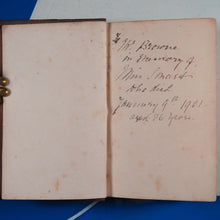 Mr Browne
in memory of
Miss Smart
who died
January 9th 1921
aged 86 years